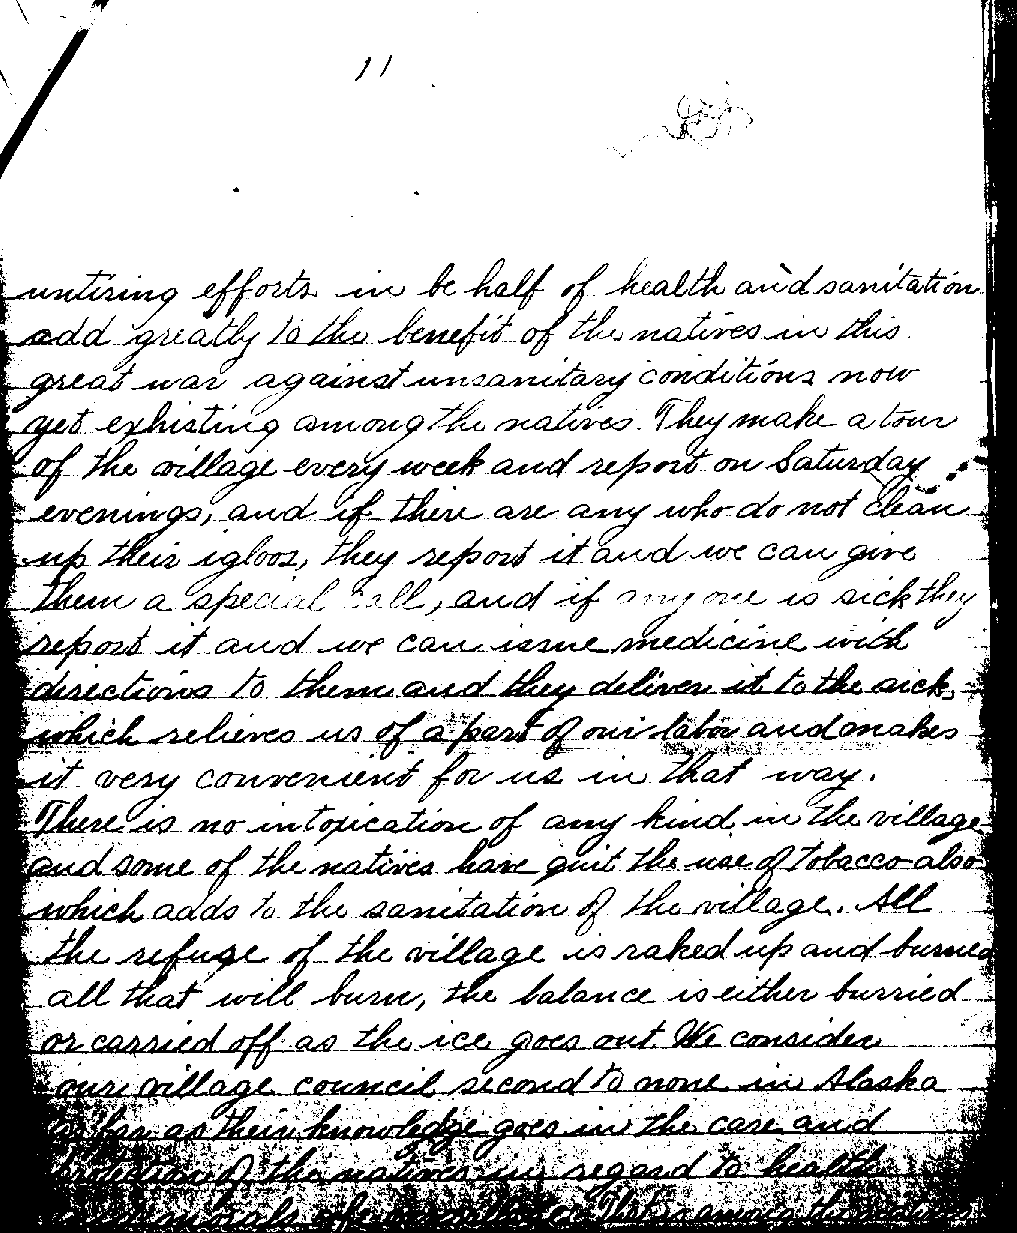 11
untiring efforts in be half of health and sanitation
add greatly to the benefit of the natives in this
great war against unsanitary conditions now
yet exhisting among the natives. They make a tour
of the village every week and report on Saturday
evenings, and if there are any who do not clean
up their igloos, they report it and we can give
them a special call, and if any one is sick they
report it and we can issue medicine with
directions to them and they deliver it to the sick,
which relieves us of a part of our labor and makes
it very convenient for us in that way.
There is no intoxication of any kind in the village
and some of the natives have quit the use of tobacco also
which adds to the sanitation of the village. All
the refuge of the village is raked up and burned
all that will burn, the balance is either burried
or carried off as the ice goes out. We consider
our village council second to none in Alaska
as far as their knowledge goes in the care and
of the natives in regard to health
morals of